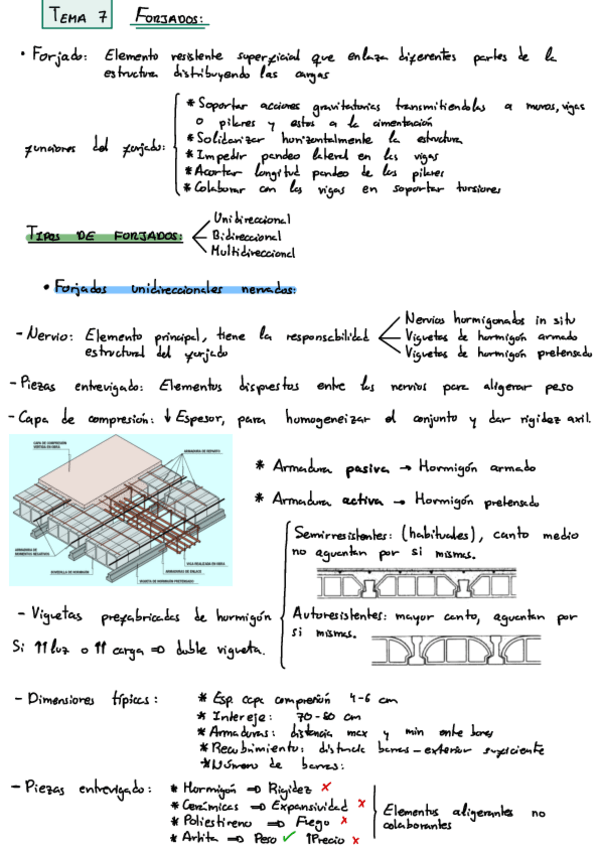 TEMA 7 FORJADOS:
• Forjado: Elemento resistente superficial que enlaza diferentes partes de la
estructura distribuyendo las cargas
funciones del forjado:
* Soportar acciones gravitatorias transmitiendolas a muros, vigas
o pilares y estos a la cimentación
* Solidarizar horizontalmente la estructura
* Impedir pandeo lateral en las vigas
* Acortar longitud pandeo de los pilares
* Colaborar con las vigas en soportar torsiones
TIPOS DE FORJADOS:
Unidireccional
Bidireccional
Multidireccional
• Forjados unidireccionales nervados:
- Nervio: Elemento principal, tiene la responsabilidad
estructural del forjado
Nervios hormigonados in situ
Viguetas de hormigón armado
Viguetas de hormigón pretensado
- Piezas entrevigado: Elementos dispuestos entre los nervios para aligerar peso
- Capa de compresión: ↓ Espesor, para homogeneizar el conjunto y dar rigidez axil.
CAPA DE COMPRESIÓN
VERTIDA EN OBRA
ARMADURA DE REPARTO
ARMADURA DE
MOMENTOS NEGATIVOS
BOVEDILLA DE HORMIGÓN
VIGUETA DE HORMIGÓN PRETENSADO
ARMADURAS DE ENLACE
VIGA REALIZADA EN OBRA
* Armadura pasiva → Hormigón armado
* Armadura activa → Hormigón pretensado
- Viguetas prefabricadas de hormigón
Semirresistentes: (habituales), canto medio
no aguantan por si mismas.
Autoresistentes: mayor canto, aguantan por
si mismas.
Si ↑↑ luz o ↑↑ carga ⇒ doble vigueta.
- Dimensiones típicas:
* Esp. capa compresión 4-6 cm
* Intereje: 70-80 cm
* Armaduras: distancia max y min entre barras
* Recubrimiento: distancia barras - exterior suficiente
* Número de barras:
- Piezas entrevigado:
* Hormigón ⇒ Rigidez ✗
* Cerámicas ⇒ Expansividad ✗
* Poliestireno ⇒ Fuego ✗
* Arlita ⇒ Peso ✓ ↑Precio ✗
Elementos aligerantes no
colaborantes